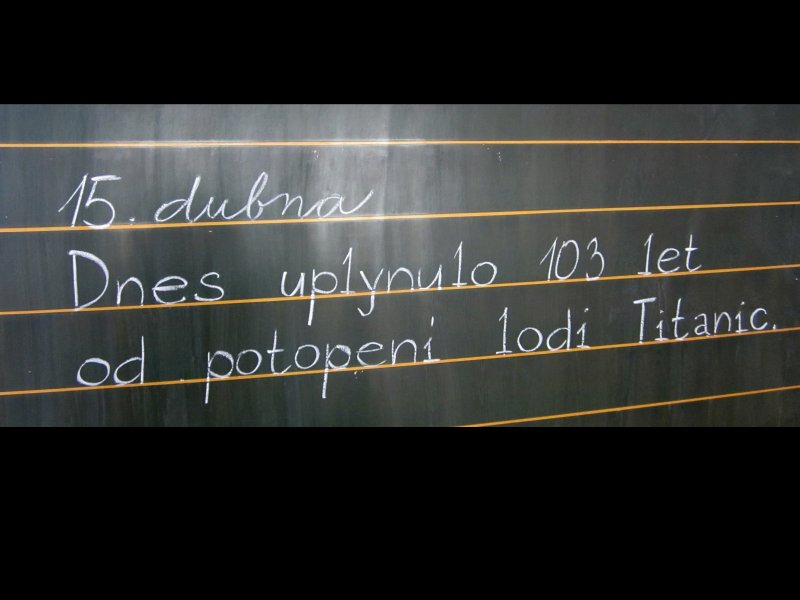 15. dubna
Dnes uplynulo 103 let
od potopení lodi Titanic.